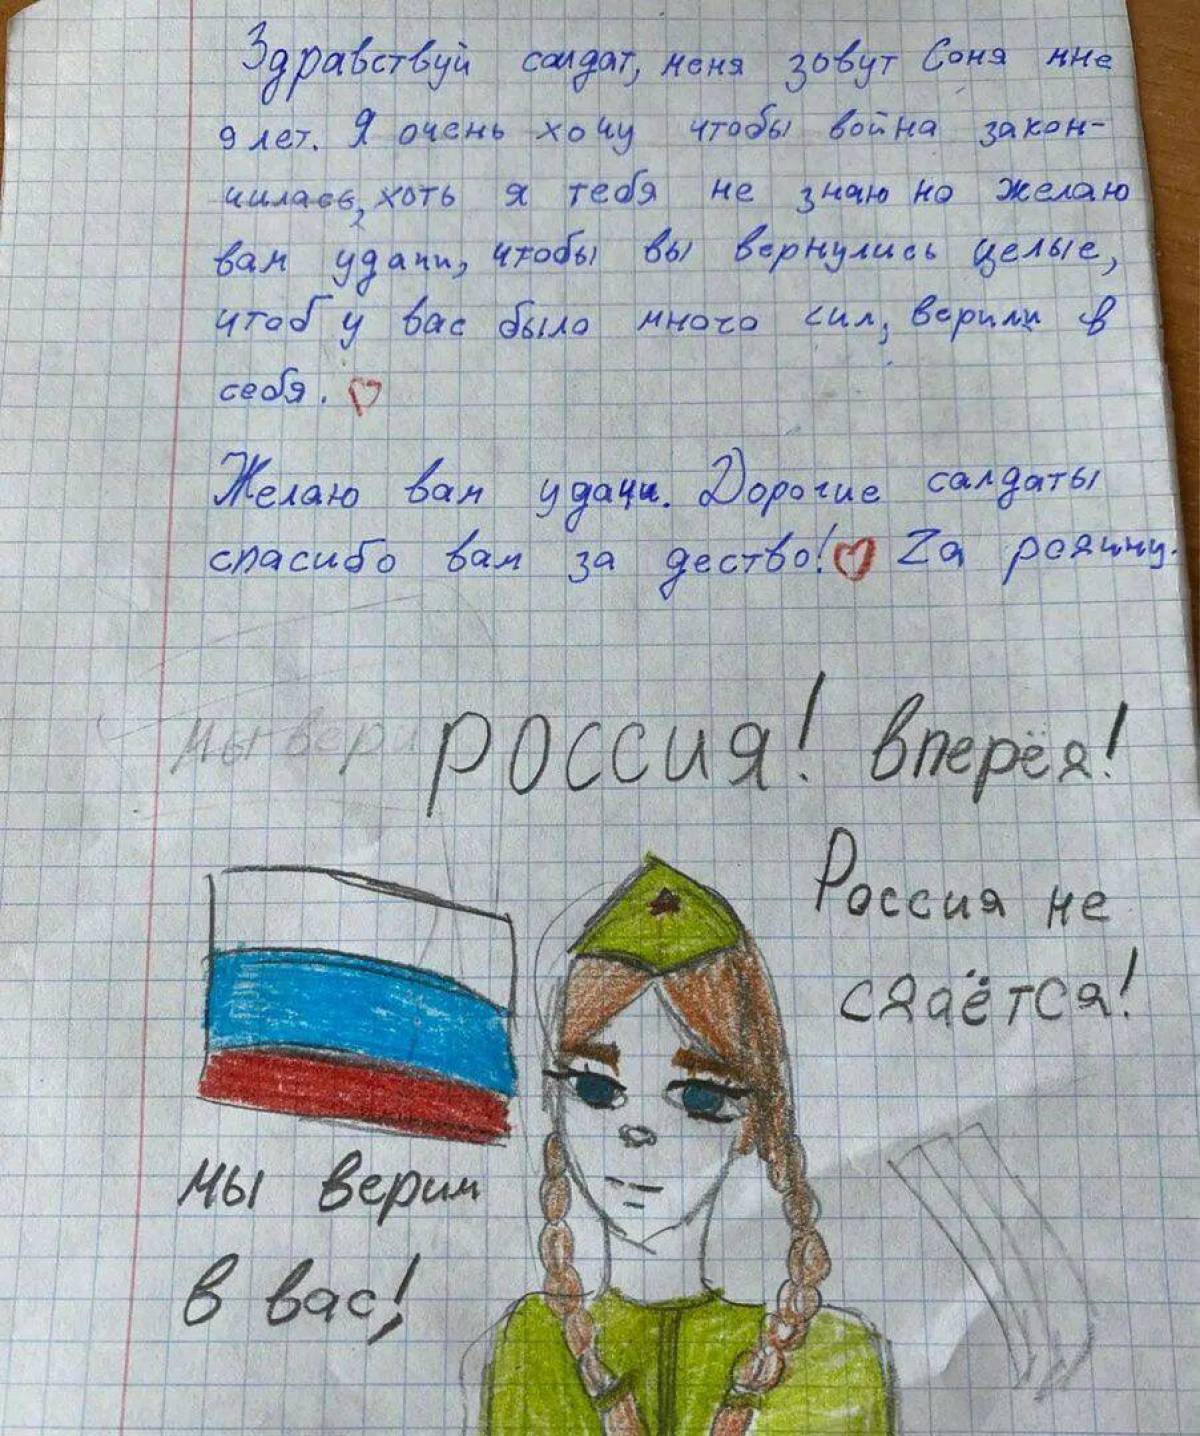 Здравствуй салдат, меня зовут Соня мне
9 лет. Я очень хочу чтобы война закон-
чилась, хоть я тебя не знаю но желаю
вам удачи, чтобы вы вернулись целые,
чтоб у вас было много сил, верили в
себя.
Желаю вам удачи. Дорогие салдаты
спасибо вам за дество! Zа родину.
мы вери
РОССИЯ! вперёд!
Россия не
сдаётся!
мы верим
в вас!